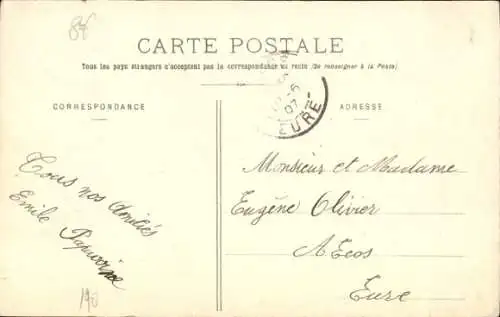 84
CARTE POSTALE
Tous les pays étrangers n'acceptent pas la correspondance au recto (Se renseigner à la Poste)
CORRESPONDANCE
ADRESSE
07
EURE
Tous nos amitiés
Emile
Monsieur et Madame
Eugène Olivier
A Ecos
Eure
190